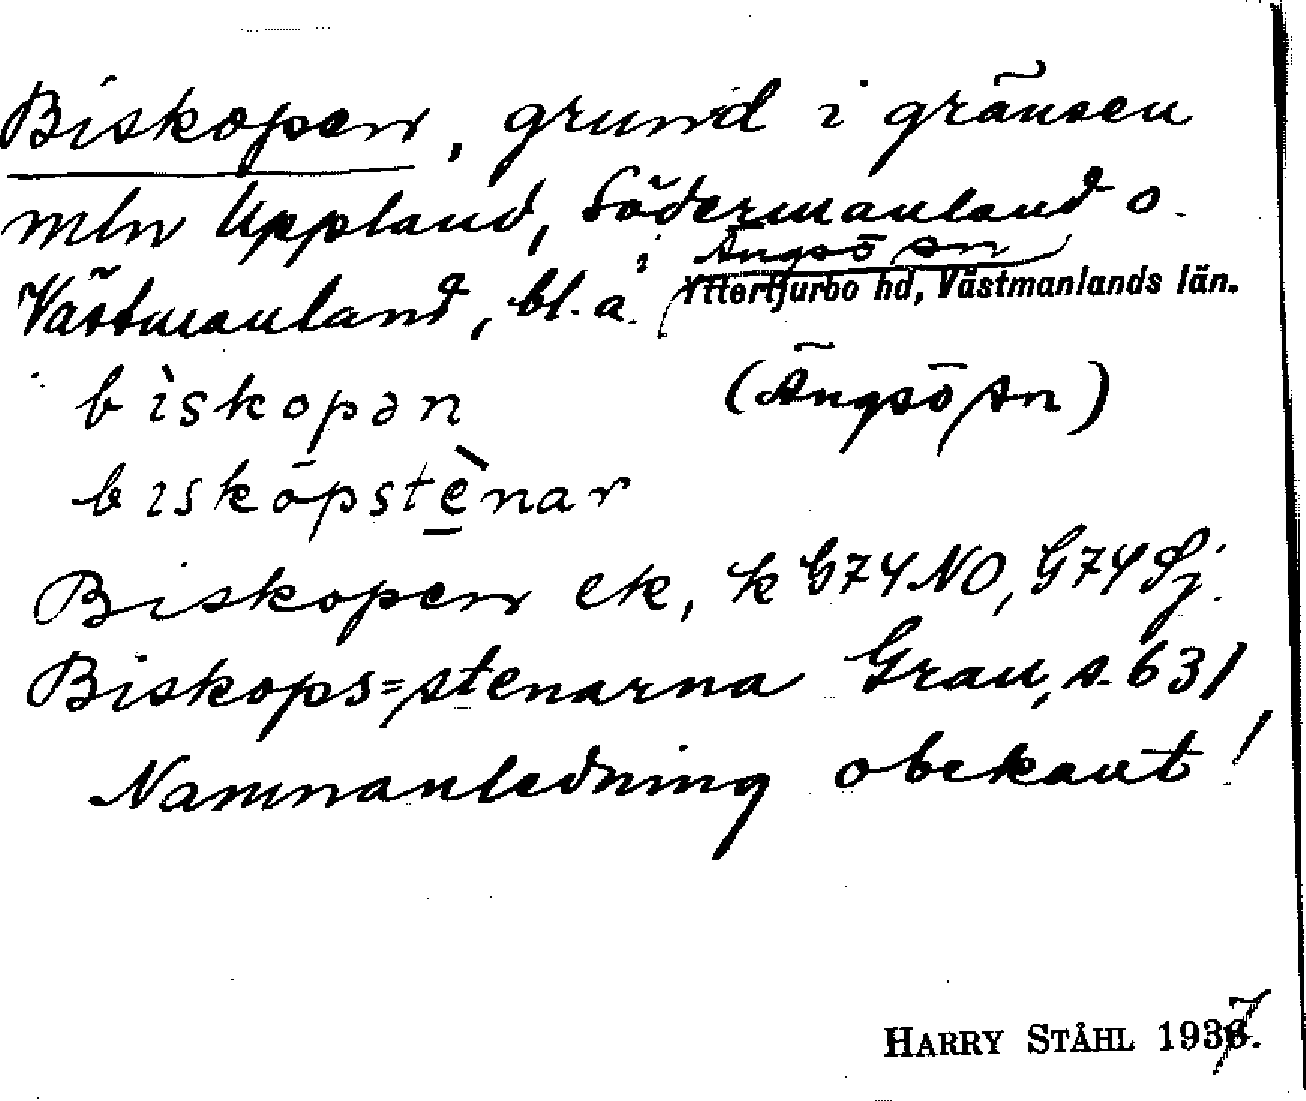 Biskopen, grund i gränsen
mln Uppland, Södermanland o.
Västmanland, bl. a. i Ängsö sn
Yttertjurbo hd, Västmanlands län.
bìskopən (Ängsö sn)
bıskōpstè̱nar
Biskopen ek, k G74NO, G74 Sj.
Biskops=stenarna Grau, s. 631
Namnanledning obekant!
HARRY STÅHL 1937.